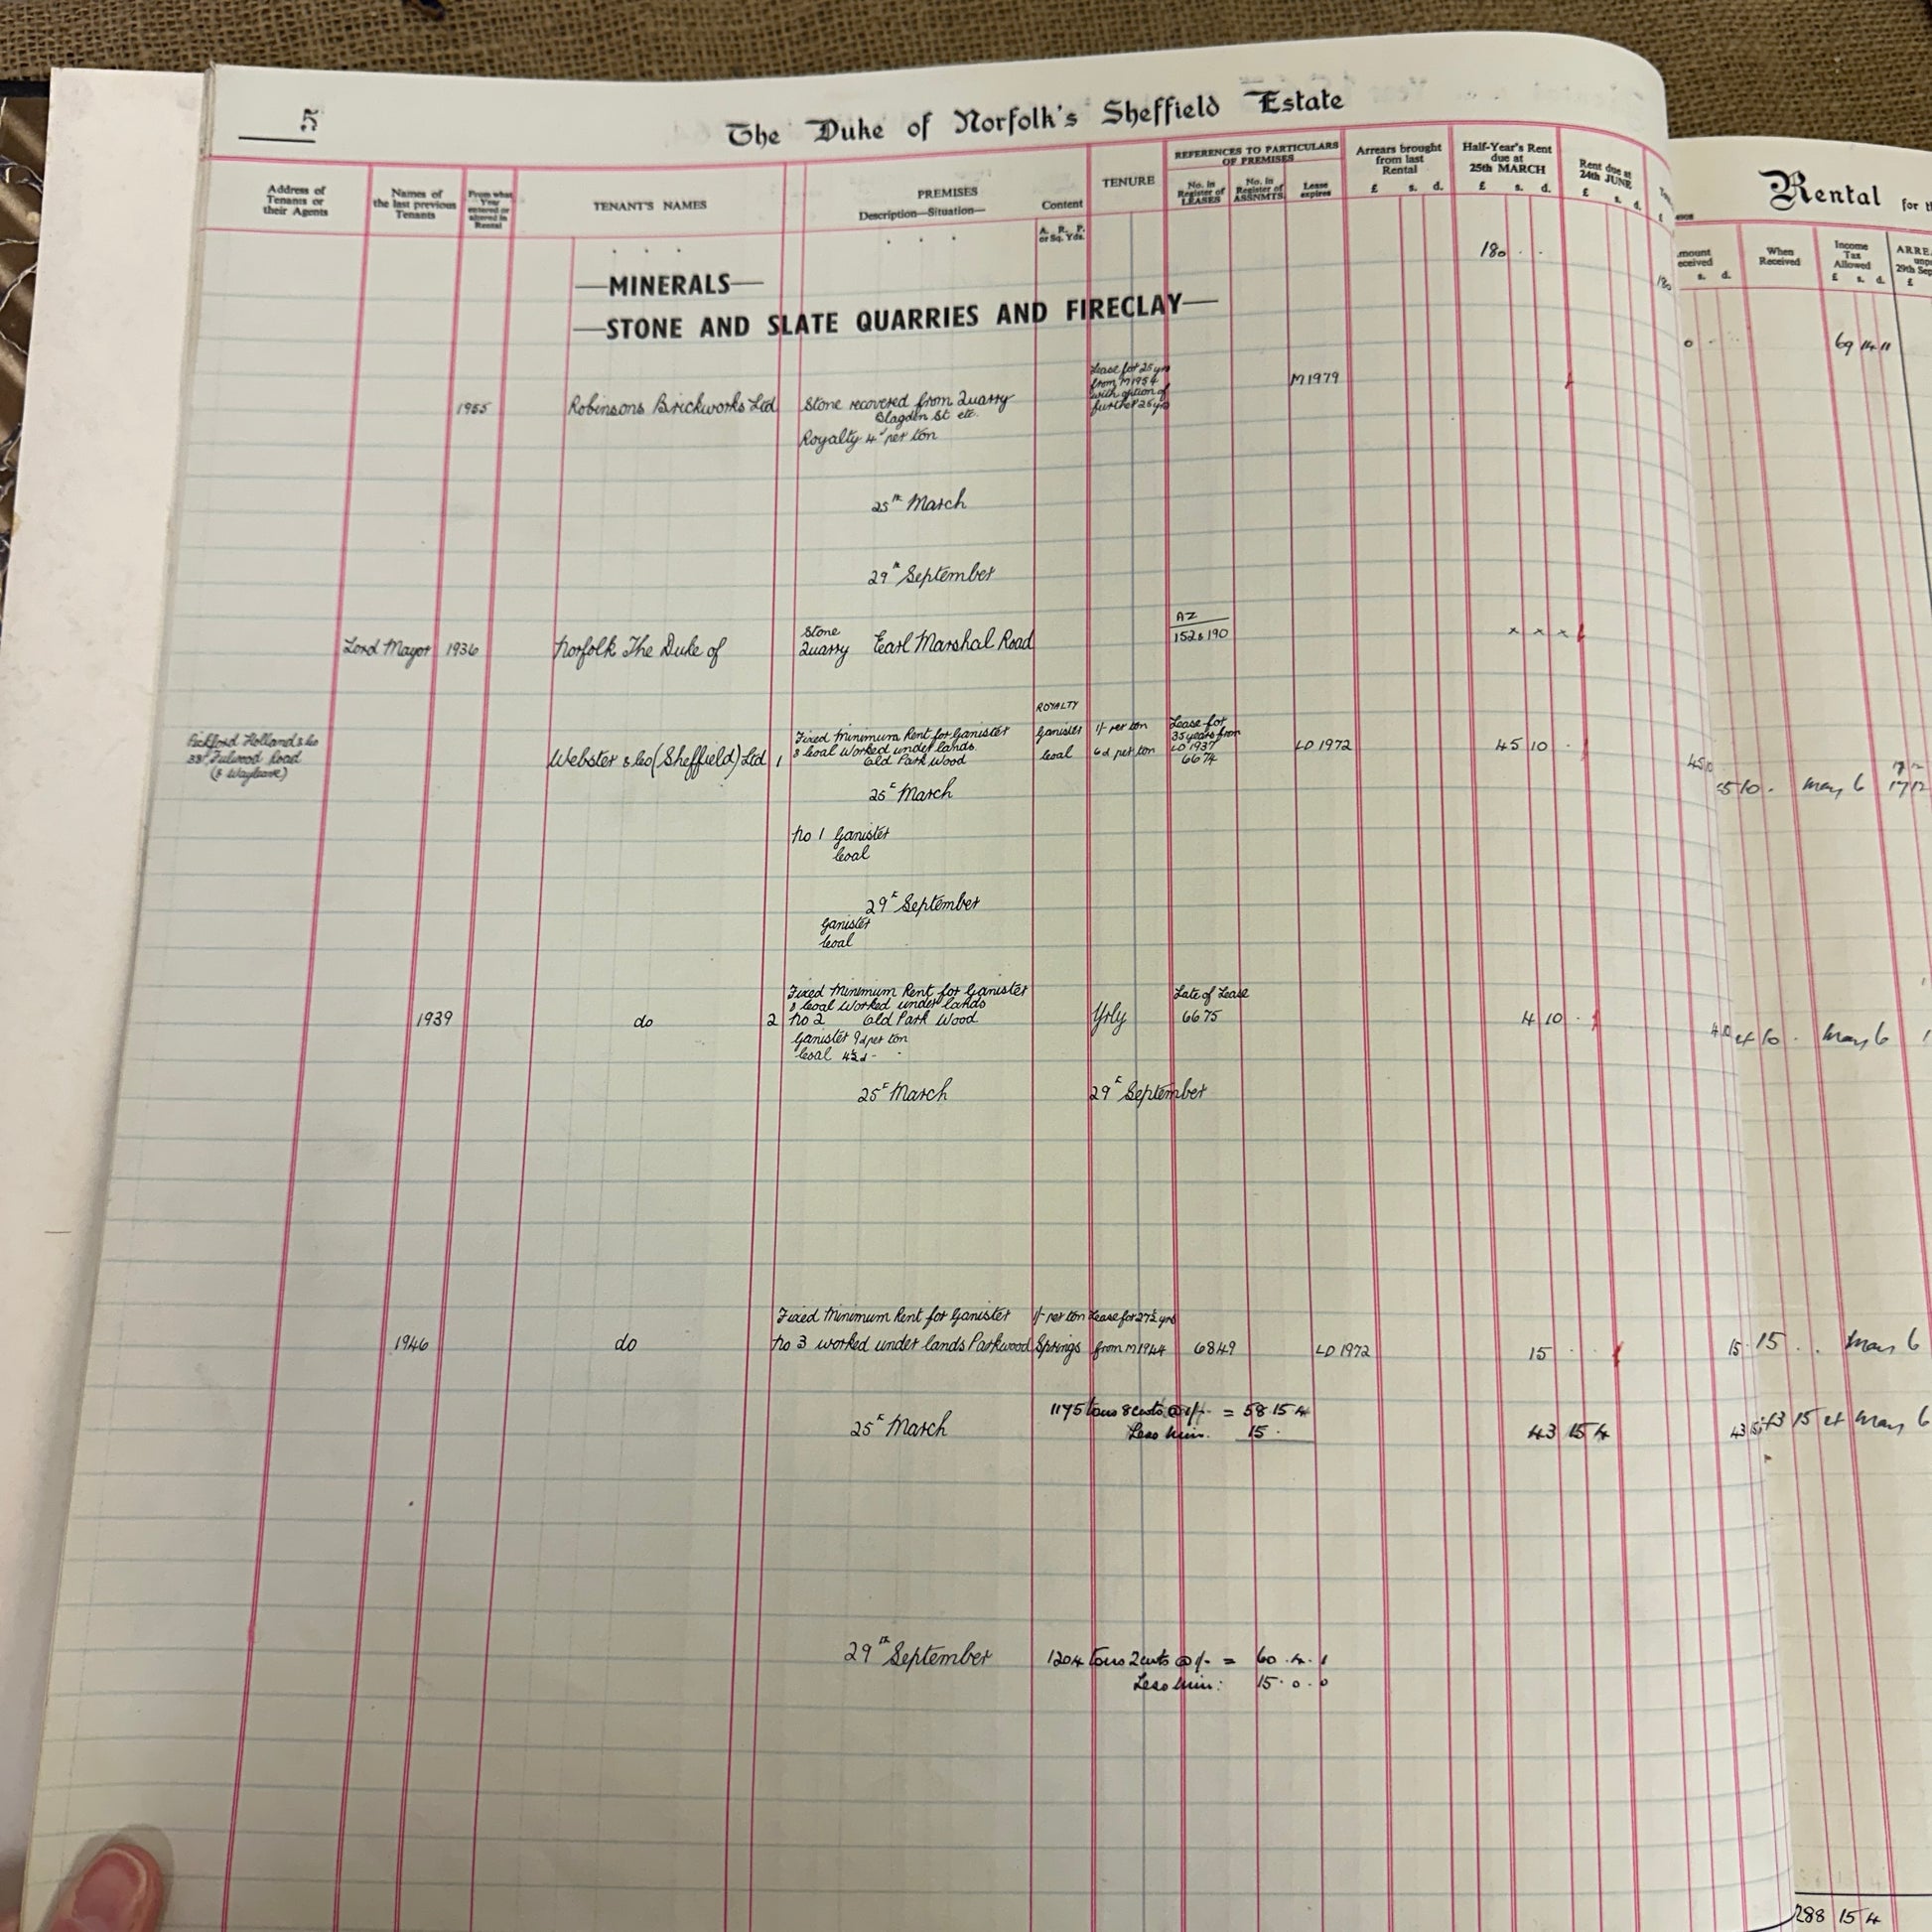 5
The Duke of Norfolk's Sheffield Estate
Rental for t
Address of Tenants or their Agents
Names of the last previous Tenants
From what Year entered or altered in Rental
TENANT'S NAMES
PREMISES
Description—Situation—
Content
A. R. P. or Sq. Yds.
TENURE
REFERENCES TO PARTICULARS OF PREMISES
No. in Register of LEASES
No. in Register of ASSNMTS.
Lease expires
Arrears brought from last Rental
£ s. d.
Half-Year's Rent due at 25th MARCH
£ s. d.
Rent due at 24th JUNE
£ s. d.
mount eceived
s. d.
When Received
Income Tax Allowed
£ s. d.
ARRE
29th Sep
£
180 . .
180
—MINERALS—
—STONE AND SLATE QUARRIES AND FIRECLAY—
0 . .
69 14 11
1955 Robinsons Brickworks Ltd
Stone recovered from Quarry
Blagden St etc.
Royalty 4d per ton
Lease for 25 yrs
from M1954
with option of
further 25 yrs
M1979
25th March
29th September
Lord Mayor 1936 Norfolk The Duke of
Stone
Quarry Earl Marshal Road
AZ
152 & 190
x x x
Pickford Holland & Co
381 Fulwood Road
(& Wayleave)
Webster & Co (Sheffield) Ltd 1
Fixed Minimum Rent for Ganister
& Coal Worked under lands.
Old Park Wood
ROYALTY
Ganister 1/- per ton
Coal 6d per ton
Lease for
35 years from
LD 1937
6674
LD 1972
45 10 .
45 10
5 10 . May 6 17 12
25th March
No 1 Ganister
Coal
29th September
Ganister
Coal
1939 do 2
Fixed Minimum Rent for Ganister
& Coal Worked under lands
No 2 Old Park Wood
Ganister 9d per ton
Coal 4½d - .
Yrly
Late of Lease
6675
4 10 .
4 10
4 10 . May 6
25th March
29th September
1946 do
Fixed Minimum Rent for Ganister 1/- per ton Lease for 27½ yrs
No 3 worked under lands Parkwood Springs from M1944 6849 LD 1972
15 . .
15
15 . . May 6
25th March
1175 tons 8cwts @ 1/- = 58 15 4
Less min. 15 .
43 15 4
43 15
43 15 4 May 6
29th September
1204 tons 2cwts @ 1/- = 60 . 4 . 1
Less min: 15 . 0 . 0
288 15 4